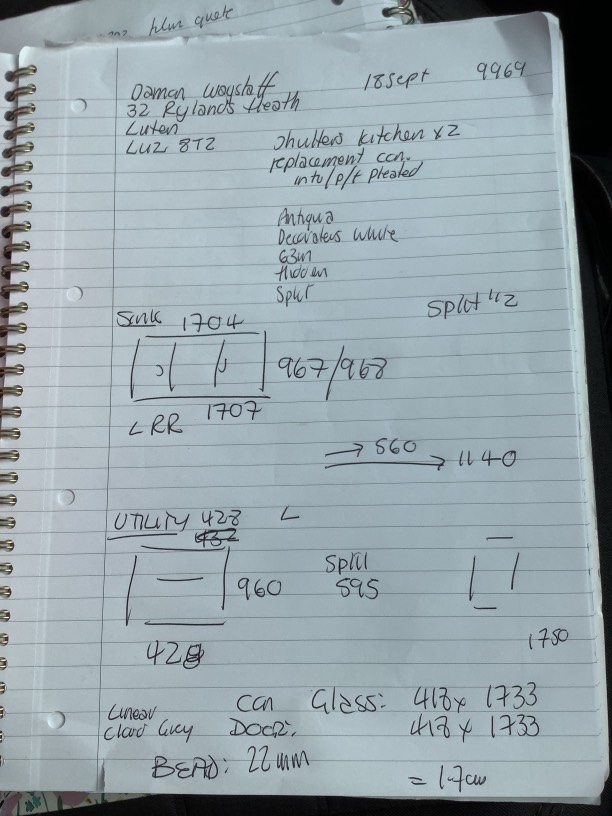 blur quote
18 Sept 9969
Daman Waystaff
32 Rylands Heath
Luten
LU2 8TZ
Shutters kitchen x 2
replacement con.
into/p/t pleated
Antiqua
Decorators White
63m
Hidden
Split
Split 1/2
Sink 1704
967/968
LRR 1707
→ 560
→ 1140
UTILITY 428 L
432
960
Split
595
428
1750
con Glass: 418 x 1733
Linear
Cloud Grey DOOR: 418 x 1733
BEAD: 22mm
= 1.7cm